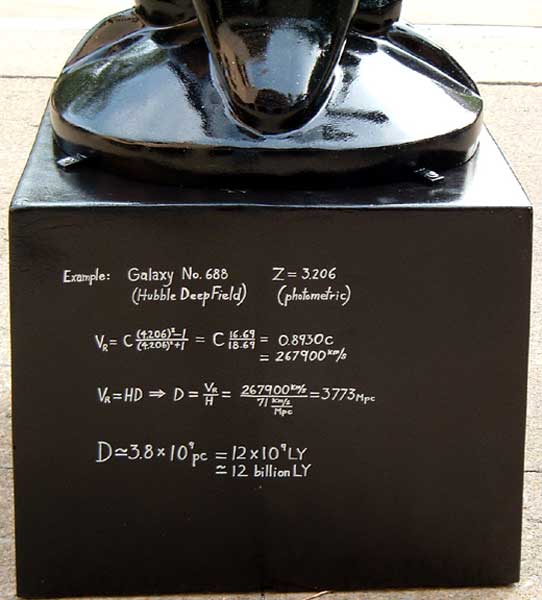 Example: Galaxy No. 688 Z = 3.206
(Hubble Deep Field) (photometric)
V_R = C (4.206)²-1 / (4.206)²+1 = C 16.69 / 18.69 = 0.8930C
= 267900 km/s
V_R = HD ⇒ D = V_R / H = 267900 km/s / 71 km/s / Mpc = 3773 Mpc
D ≃ 3.8 × 10⁹ pc = 12 × 10⁹ LY
≃ 12 billion LY